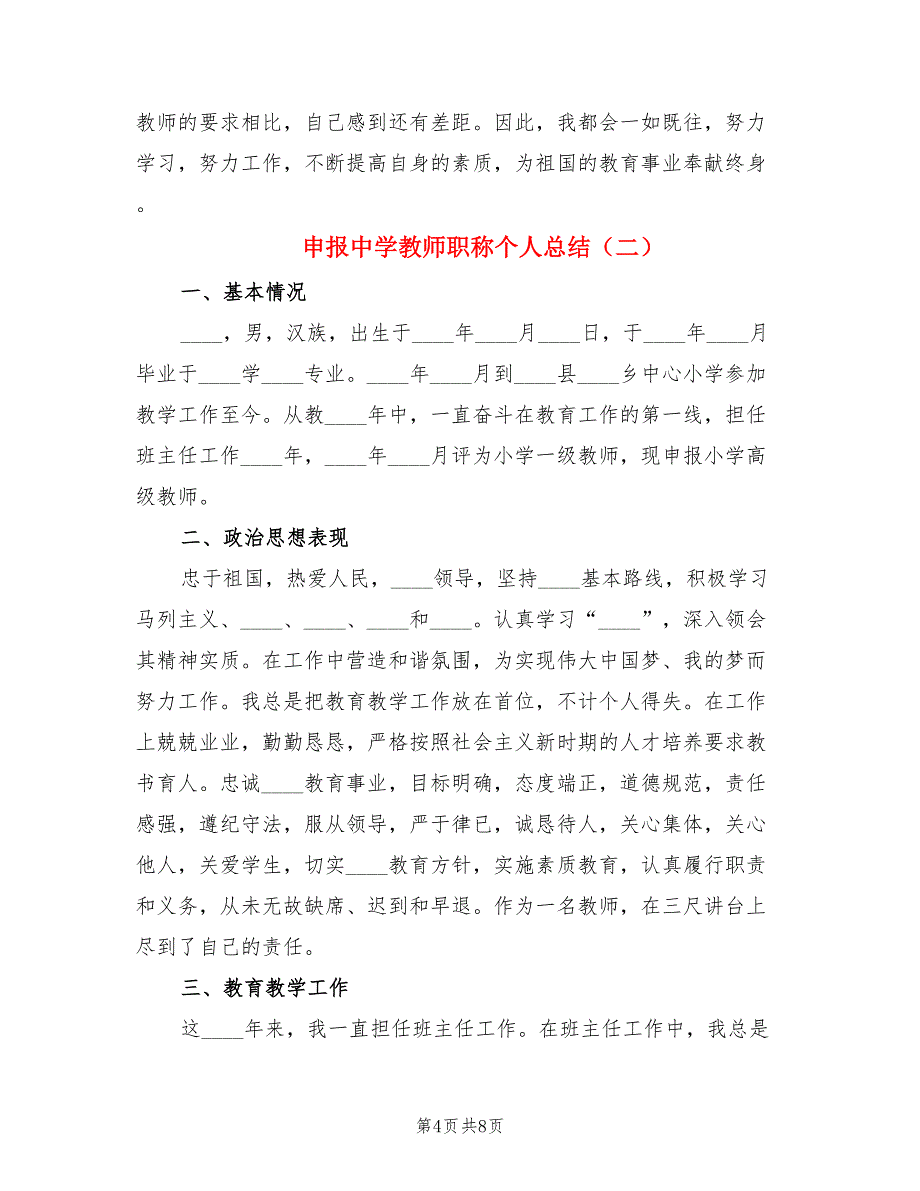 教师的要求相比，自己感到还有差距。因此，我都会一如既往，努力
学习，努力工作，不断提高自身的素质，为祖国的教育事业奉献终身
。
申报中学教师职称个人总结（二）
一、基本情况
____，男，汉族，出生于____年____月____日，于____年____月
毕业于____学____专业。____年____月到____县____乡中心小学参加
教学工作至今。从教____年中，一直奋斗在教育工作的第一线，担任
班主任工作____年，____年____月评为小学一级教师，现申报小学高
级教师。
二、政治思想表现
忠于祖国，热爱人民，____领导，坚持____基本路线，积极学习
马列主义、____、____、____和____。认真学习“____”，深入领会
其精神实质。在工作中营造和谐氛围，为实现伟大中国梦、我的梦而
努力工作。我总是把教育教学工作放在首位，不计个人得失。在工作
上兢兢业业，勤勤恳恳，严格按照社会主义新时期的人才培养要求教
书育人。忠诚____教育事业，目标明确，态度端正，道德规范，责任
感强，遵纪守法，服从领导，严于律已，诚恳待人，关心集体，关心
他人，关爱学生，切实____教育方针，实施素质教育，认真履行职责
和义务，从未无故缺席、迟到和早退。作为一名教师，在三尺讲台上
尽到了自己的责任。
三、教育教学工作
这____年来，我一直担任班主任工作。在班主任工作中，我总是
第4页 共8页